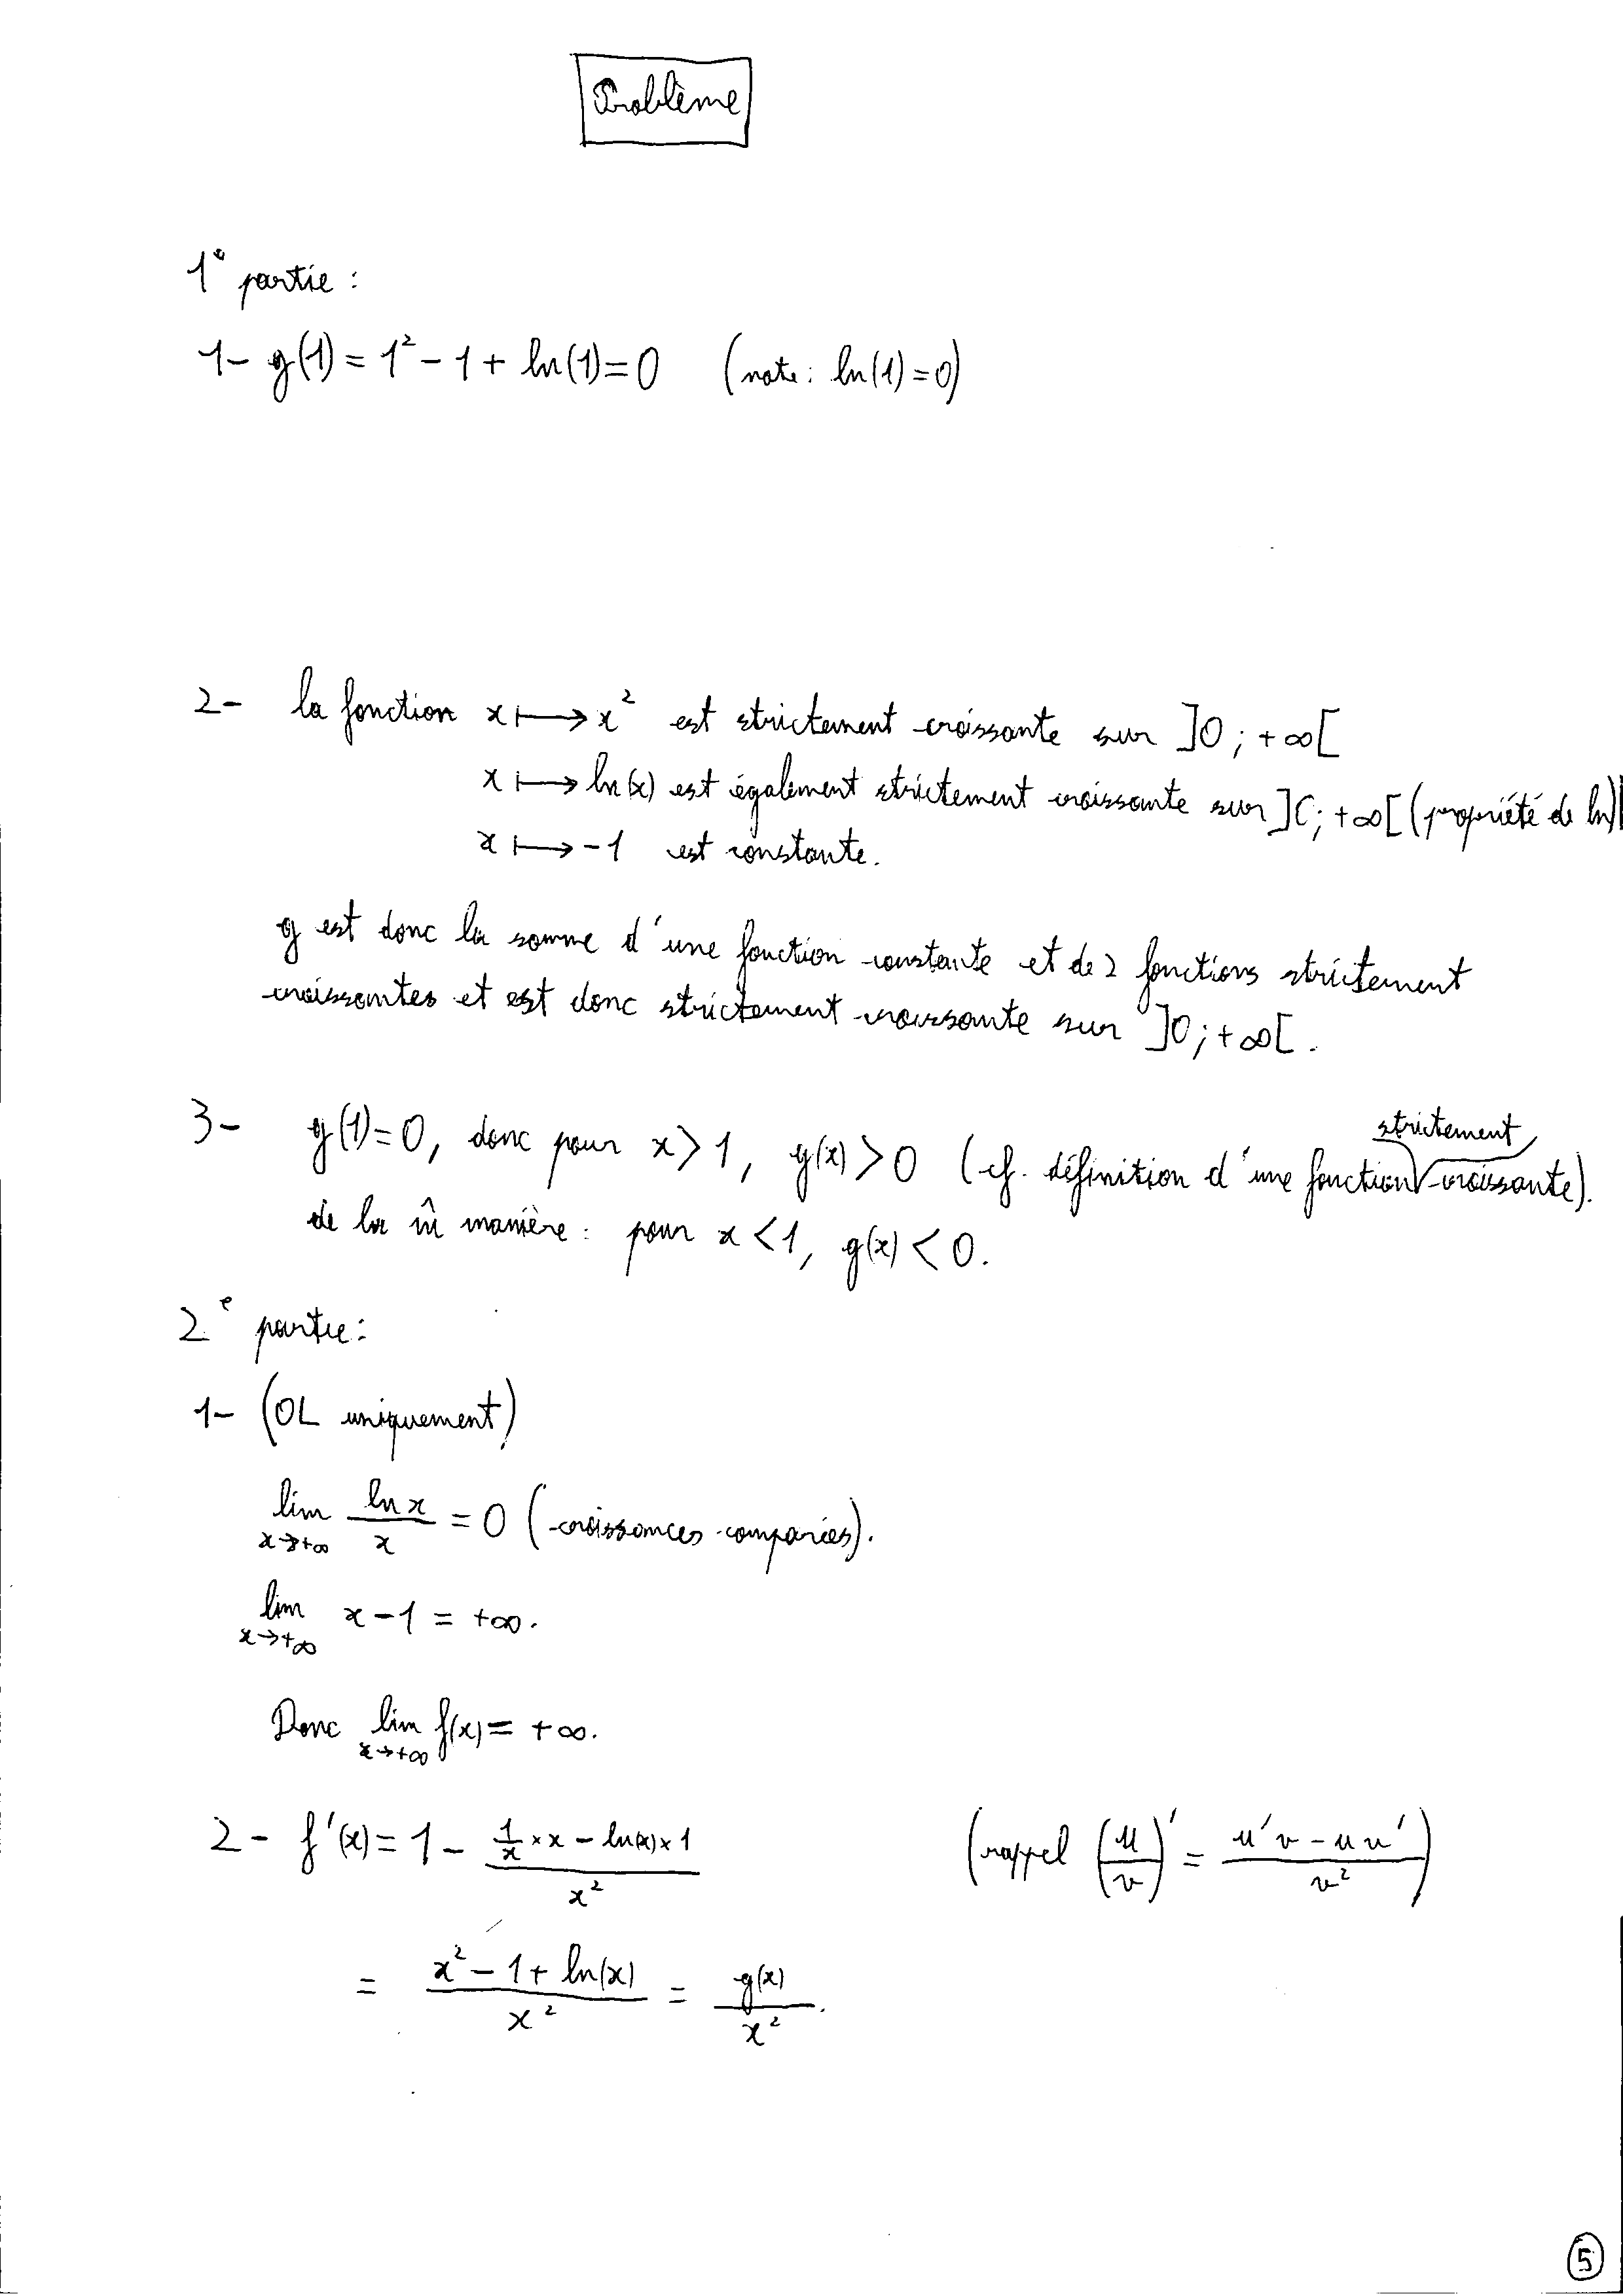 Problème
1° partie :
1- g(1) = 1² - 1 + ln(1) = 0 (note : ln(1) = 0)
2- la fonction x ⟼ x² est strictement croissante sur ]0 ; +∞[
x ⟼ ln(x) est également strictement croissante sur ]0 ; +∞[ (propriété de ln)
x ⟼ -1 est constante.
g est donc la somme d'une fonction constante et de 2 fonctions strictement
croissantes et est donc strictement croissante sur ]0 ; +∞[.
3- g(1) = 0, donc pour x > 1, g(x) > 0 (cf. définition d'une fonction strictement croissante).
de la m̂ manière : pour x < 1, g(x) < 0.
2e partie :
1- (OL uniquement)
lim x→+∞ ln x / x = 0 (croissances comparées).
lim x→+∞ x - 1 = +∞.
Donc lim x→+∞ f(x) = +∞.
2- f'(x) = 1 - (1/x × x - ln(x) × 1) / x² (rappel (u/v)' = (u'v - uv') / v²)
= (x² - 1 + ln(x)) / x² = g(x) / x².
5